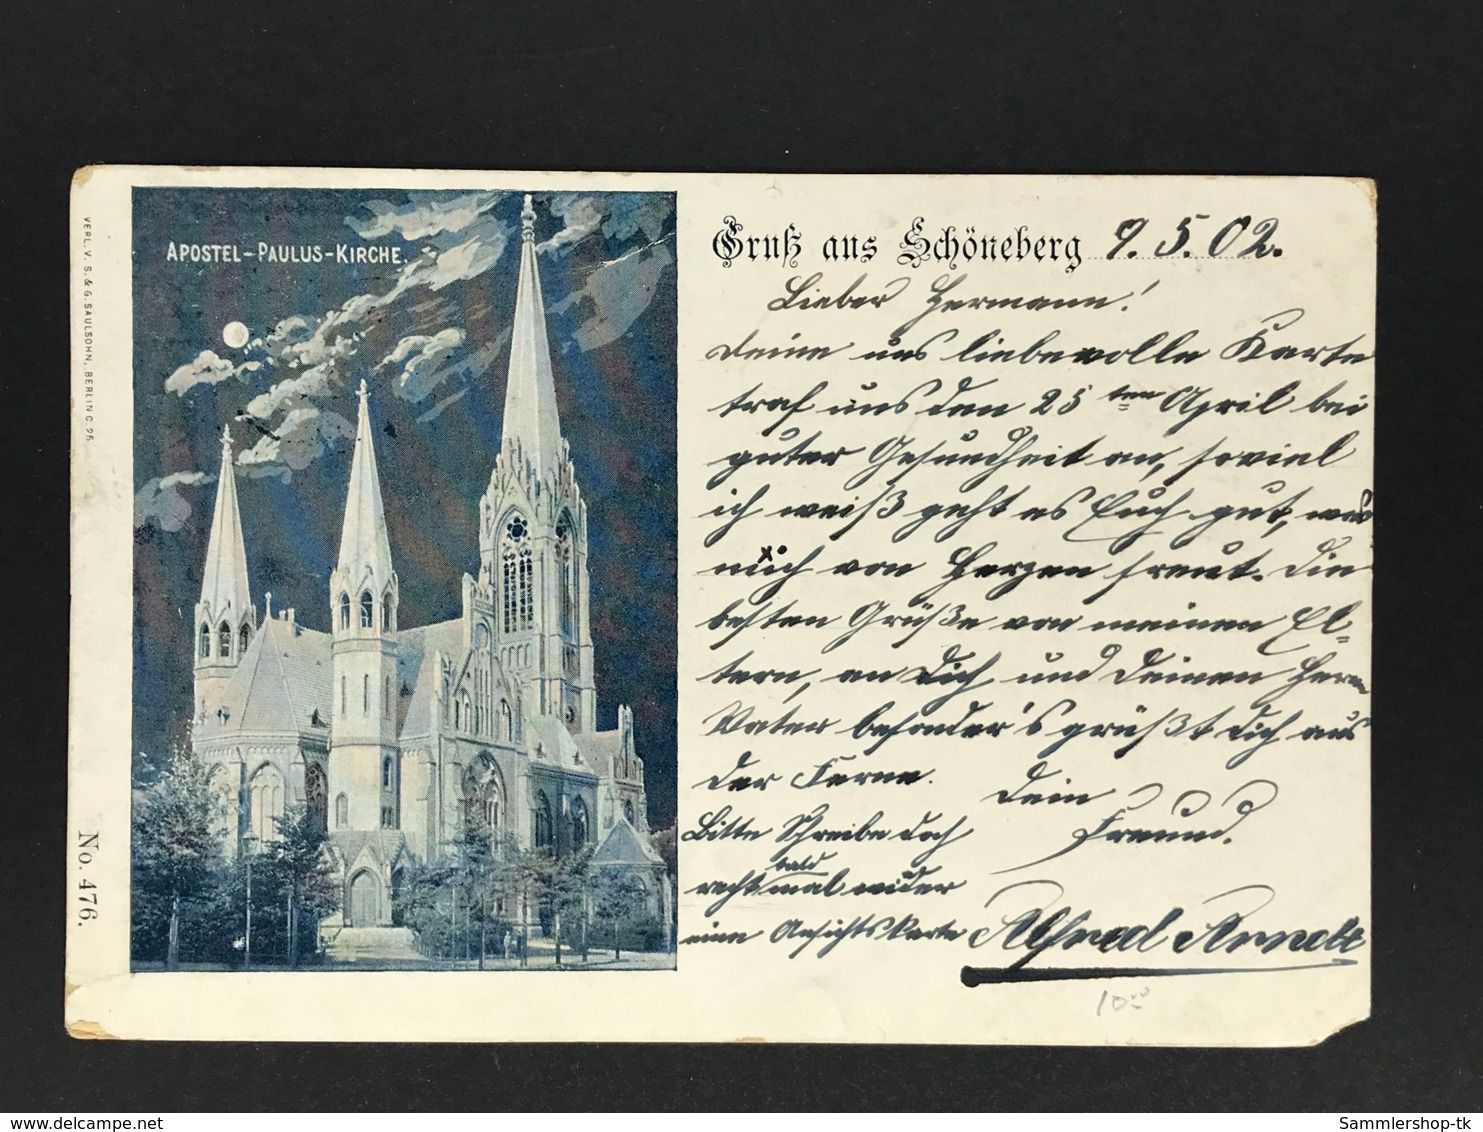 APOSTEL-PAULUS-KIRCHE.
VERL. V. S. & G. SAULSOHN, BERLIN C 25
No. 476.
Gruß aus Schöneberg 9. 5. 02.
Lieber Hermann!
Deine uns liebevolle Karte
traf uns den 25ten April bei
guter Gesundheit an, soviel
ich weiß geht es Euch gut, was
mich von Herzen freut. Die
besten Grüße von meinen El-
tern, an Dich und Deinen Herrn
Vater besonder's grüßt Dich aus
der Ferne. Dein
Freund.
Bitte Schreibe doch
bald
recht mal wieder
eine Ansichtskarte Alfred Arndt
10.00
Sammlershop-tk